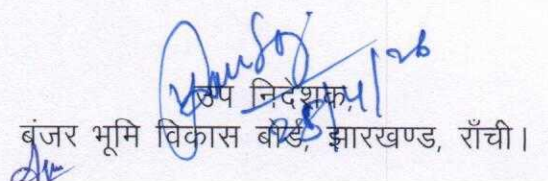 उप निदेशक,
बंजर भूमि विकास बोर्ड, झारखण्ड, राँची।